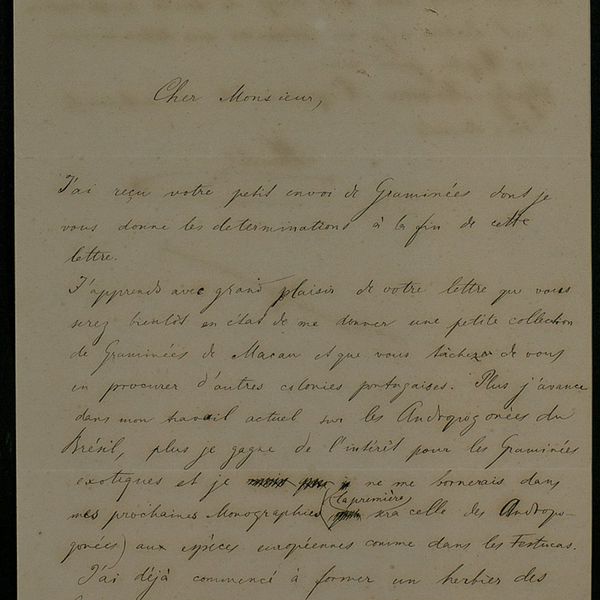 Cher Monsieur,
J'ai reçu votre petit envoi de Graminées dont je
vous donne les determinations à la fin de cette
lettre.
J'apprends avec grand plaisir de votre lettre que vous
serez bientôt en état de me donner une petite collection
de Graminées de Macau et que vous tâcherez de vous
en procurer d'autres colonies portugaises. Plus j'avance
dans mon travail actuel sur les Andropogonées du
Brésil, plus je gagne de l'intérêt pour les Graminées
exotiques et je ne me bornerais dans
mes prochaines Monographies (la première sera celle des Andropo-
gonées) aux espèces européennes comme dans les Festucas.
J'ai déjà commencé à former un herbier des